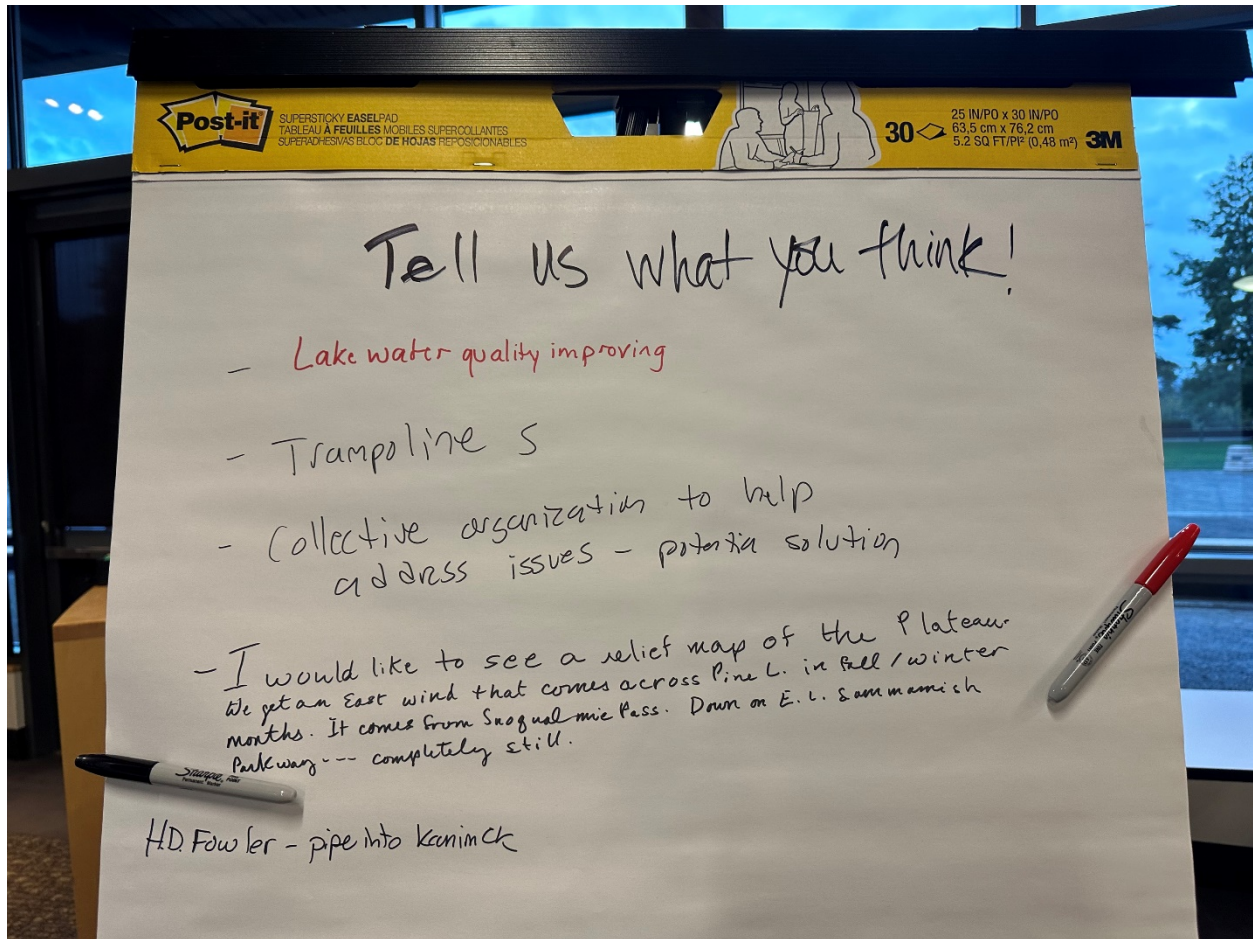 Post-it
SUPERSTICKY EASELPAD
TABLEAU À FEUILLES MOBILES SUPERCOLLANTES
SUPERADHESIVAS BLOC DE HOJAS REPOSICIONABLES
30
25 IN/PO x 30 IN/PO
63,5 cm x 76,2 cm
5.2 SQ FT/PI² (0,48 m²)
3M
Tell us what you think!
- Lake water quality improving
- Trampoline s
- Collective organization to help
address issues - potentia solution
- I would like to see a relief map of the Plateau.
We get an East wind that comes across Pine L. in fall/winter
months. It comes from Snoqualmie Pass. Down on E. L. Sammamish
Parkway --- completely still.
Sharpie
H.D. Fowler - pipe into Kaninck
Sharpie